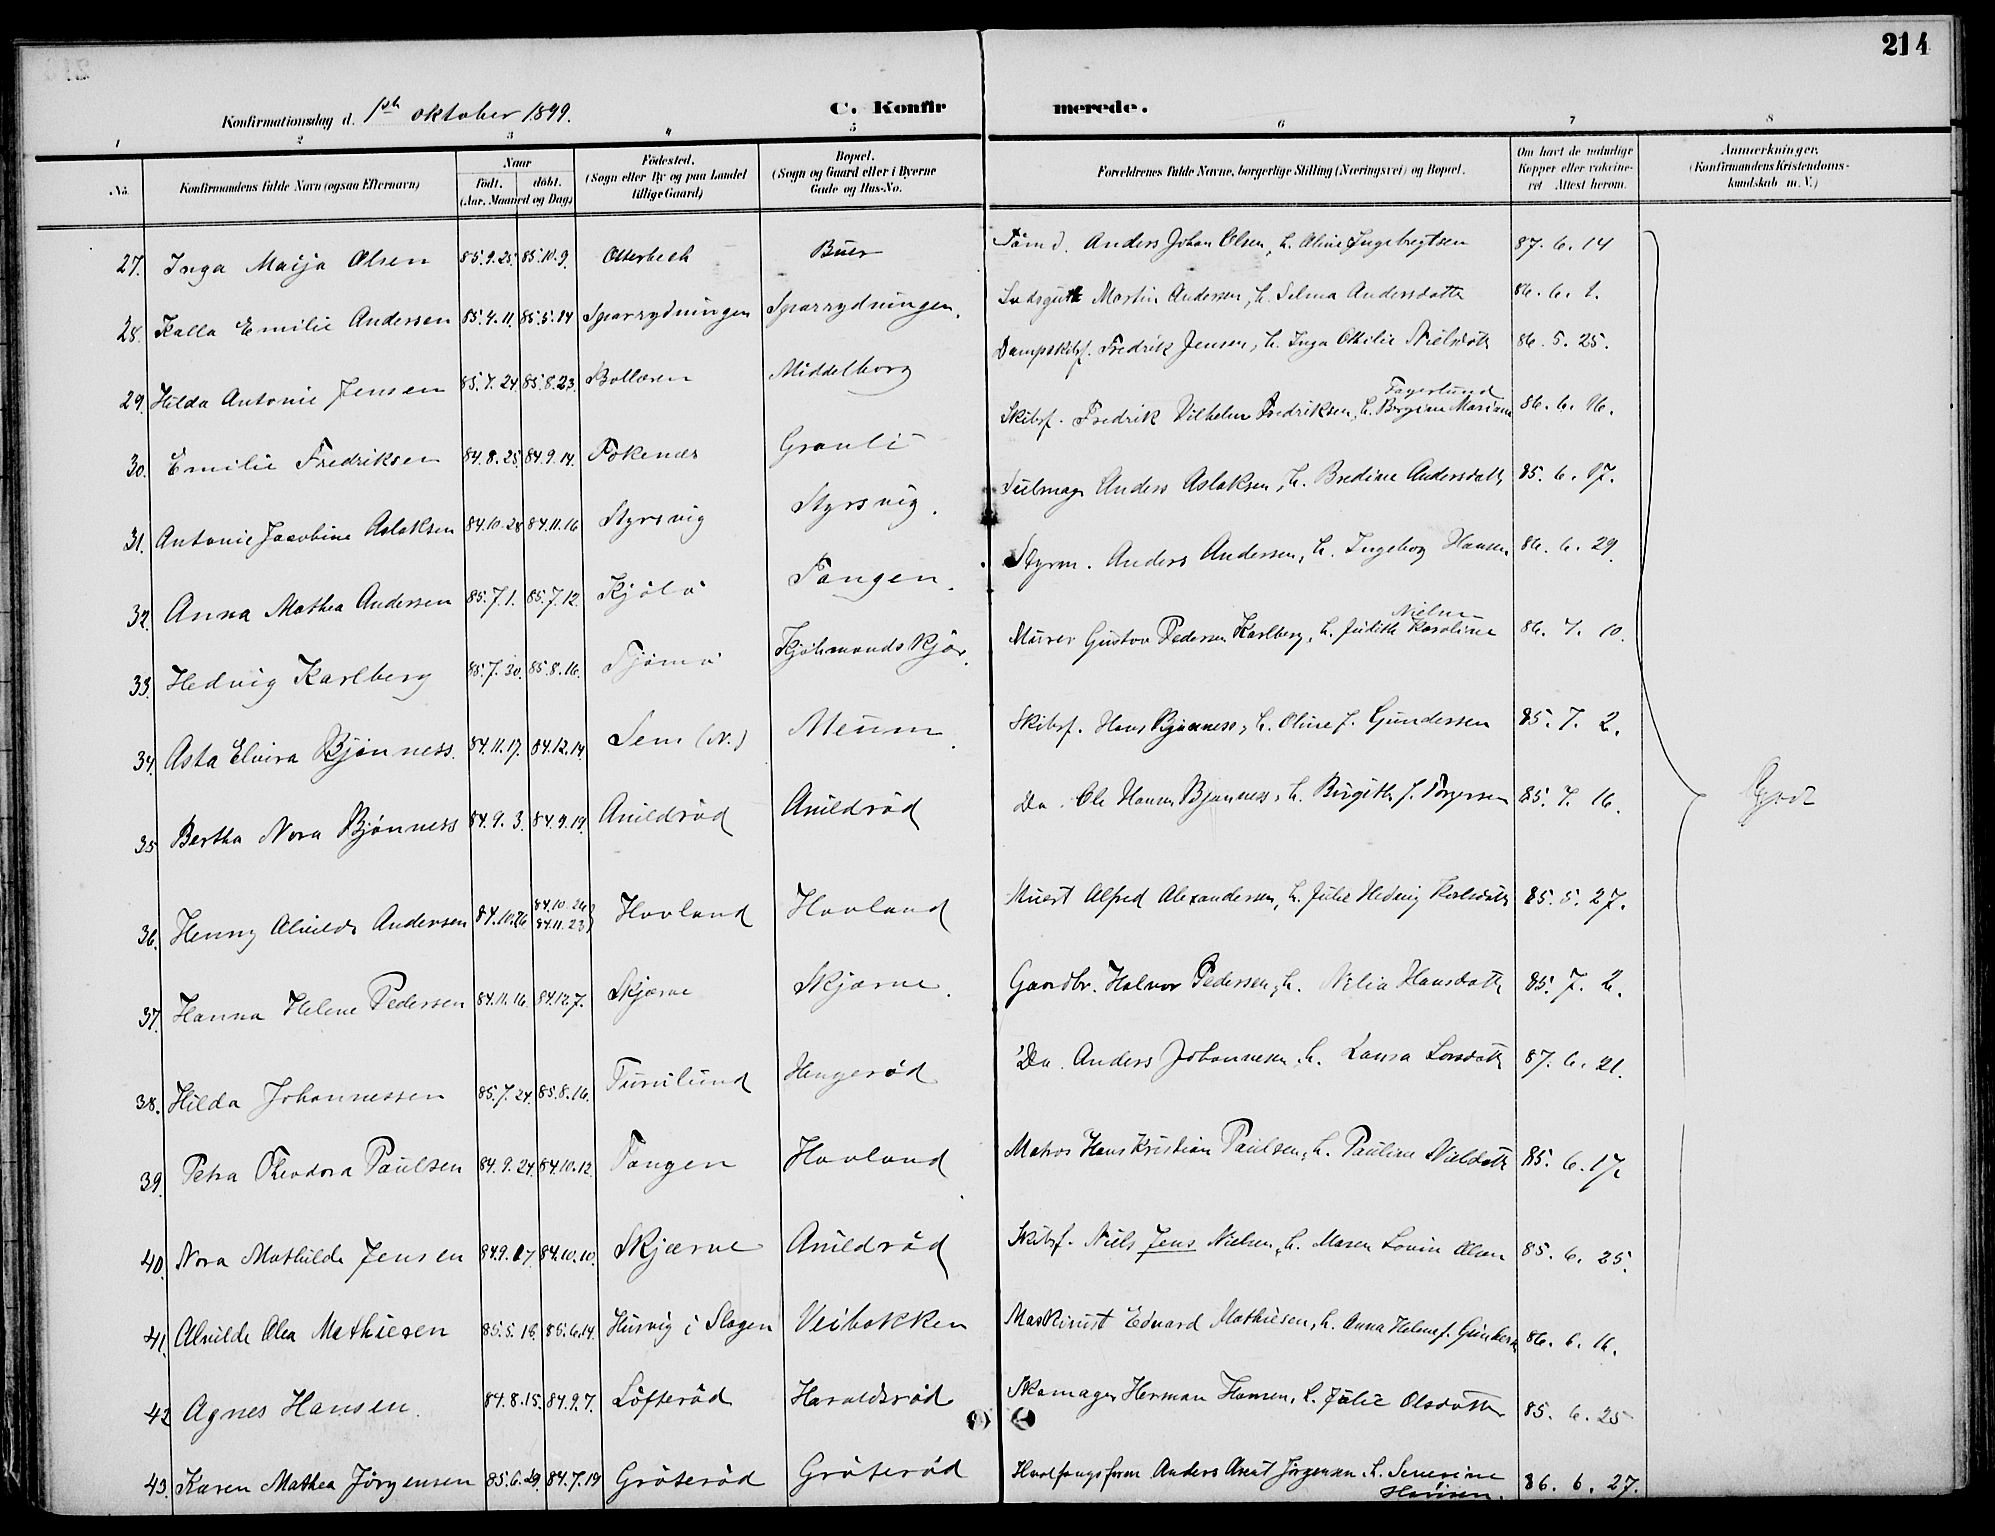 214
Konfirmationsdag d. 1ste oktober 1899. C. Konfirmerede.
1 2 3 4 5 6 7 8
No. Konfirmandens fulde Navn (ogsaa Efternavn) Naar født. døbt. (Aar, Maaned og Dag) Fødested. (Sogn eller By og paa Landet tillige Gaard) Bopæl. (Sogn og Gaard eller i Byerne Gade og Hus-No. Forældrenes fulde Navne, borgerlige Stilling (Næringsvei) og Bopæl. Om havt de naturlige Kopper eller vakcineret Attest herom. Anmærkninger. (Konfirmandens Kristendomskundskab m. V.)
27. Inga Maija Olsen 85.9.25. 85.10.9. Otterbeck Buer Tømd. Anders Johan Olsen, h. Oline Ingebregtsen 87.6.14
28. Kalla Emilie Andersen 85.4.11. 85.5.14 Sparrydningen Sparrydningen. Martin Andersen, h. Selma Andersdatter 86.6.1.
29. Hilda Antonie Jensen 85.7.24. 85.8.23. Bollæren Middelborg Dampskibsf. Fredrik Jensen, h. Inga Othilie Nielsdatt 86.5.25.
30. Emilie Fredriksen 84.8.25. 84.9.14. Fokenæs Granli Skibsf. Fredrik Vilhelm Fredriksen, h. Bergine Mariane Fagerlund 86.6.16.
31. Antonie Jacobine Aslaksen 84.10.28 84.11.16 Styrsvig Styrsvig. Seilmager Anders Aslaksen, h. Bredine Andersdatt 85.6.17.
32. Anna Mathea Andersen 85.7.1. 85.7.12. Kjølø Tangen. Styrm. Anders Andersen, h. Ingeborg Hansen 86.6.29.
33. Hedvig Karlberg 85.7.30. 85.8.16. Tjømø Kjøbmandskjær. Murer Gustav Pedersen Karlberg, h. Judith Karoline Nielsen 86.7.10.
34. Asta Elvira Bjønness. 84.11.17. 84.12.14. Sem (N.) Meum. Skibsf. Hans Bjønness, h. Oline f. Gundersen 85.7.2.
35 Bertha Nora Bjønness 84.9.3. 84.9.19. Aruildrød Aruildrød Do. Ole Hansen Bjønness, h. Birgitte f. Torgersen 85.7.16. Godt
36. Henny Alvilde Andersen 84.10.26 84.10.26 84.11.23) Hovland Hovland Alfred Alexandersen, h. Julie Hedvig Karlsdatt 85.5.27.
37. Hanna Helene Pedersen 84.11.16. 84.12.7. Skjærve Skjærve. Gaardbr. Halvor Pedersen, h. Nilia Hansdatt 85.7.2.
38. Hilda Johannessen 85.7.24. 85.8.16. Furulund Hengerød Do. Anders Johannesen, h. Laura Larsdatt 87.6.21.
39. Petra Theodora Paulsen 84.9.24. 84.10.12 Tangen Hovland Matros Hans Kristian Paulsen, h. Pauline Nielsdatt 85.6.17.
40. Nora Mathilde Jensen 84.9.17. 84.10.10. Skjærve Aruildrød Skibsf. Niels Jens Nielsen, h. Maren Lovise Olsen 85.6.25.
41. Alvilde Olea Mathiesen 85.5.16. 85.6.14. Husvig i Slagen Veibakken Maskinist Edvard Mathiesen, h. Anna Helene f. 86.6.16.
42 Agnes Hansen. 84.8.15. 84.9.7. Løfterød Haraldsrød Skomager Herman Hansen, h. Julie Olsdatter 85.6.25
43. Karen Mathea Jørgensen 85.6.29. 84.7.19 Grøterød Grøterød Hvalfangsform Anders Arent Jørgensen, h. Severine Hansen. 86.6.27.